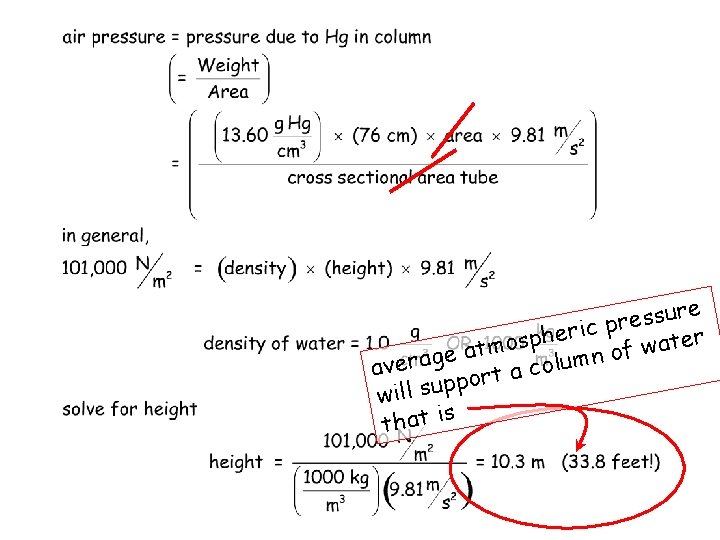 air pressure = pressure due to Hg in column
( = Weight / Area )
= ( ( 13.60 g Hg / cm³ ) × (76 cm) × area × 9.81 m/s² / cross sectional area tube )
in general,
101,000 N/m² = (density) × (height) × 9.81 m/s²
density of water = 1.0 g
average atmospheric pressure
will support a column of water
that is
solve for height
height = 101,000 N/m² / ( 1000 kg / m³ ) ( 9.81 m/s² ) = 10.3 m (33.8 feet!)